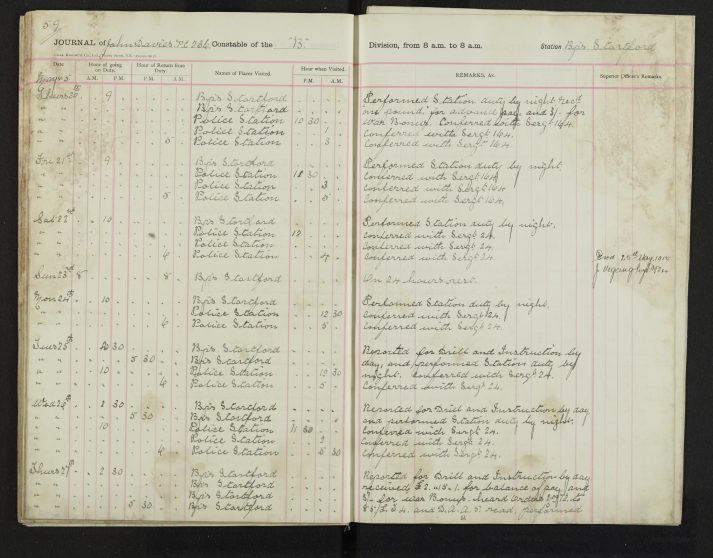 59
JOURNAL of John Davies. P.C. 236. Constable of the "B" Division, from 8 a.m. to 8 a.m. Station Bp's Stortford
Date Hour of going on Duty. Hour of Return from Duty. Names of Places Visited. Hour when Visited. REMARKS, &c. Superior Officer's Remarks.
A.M. P.M. P.M. A.M. P.M. A.M.
Thurs 20th 9 Bp's Stortford Performed Station duty by night
Bp's Stortford one pound, for advance pay, and 3/- for
Police Station 10 30 War Bonus. Conferred with Sergt 164.
Police Station 1 Conferred with Sergt 164.
5 Police Station 3 Conferred with Sergt 164.
Fri 21st 9 Bp's Stortford Performed Station duty by night
Police Station 30 Conferred with Sergt 164
Police Station 3 Conferred with Sergt 164
5 Police Station 5 Conferred with Sergt 164.
Sat 22nd 10 Bp's Stortford Performed Station duty by night.
Police Station 12 Conferred with Sergt 24.
Police Station Conferred with Sergt 24.
6 Police Station 4 Conferred with Sergt 24
Sun 23rd 8 8 Bp's Stortford On 24 hours rest.
Mon 24th 10 Bp's Stortford Performed Station duty by night.
Police Station 12 30 Conferred with Sergt 24.
6 Police Station 5 Conferred with Sergt 24.
Tues 25th 2 30 Bp's Stortford Reported for Drill and Instruction by
5 30 Bp's Stortford day, and performed Station duty by
10 Police Station 12 30 night. Conferred with Sergt 24.
6 Police Station 5 Conferred with Sergt 24.
Wed 26th 2 30 Bp's Stortford Reported for Drill and Instruction by day
5 30 Bp's Stortford and performed Station duty by night.
10 Police Station 11 30 Conferred with Sergt 24.
Police Station 2 Conferred with Sergt 24.
6 Police Station 5 30 Conferred with Sergt 24.
Thurs 27th 2 30 Bp's Stortford Reported for Drill and Instruction by day
Bp's Stortford received £2. 15. 1. for balance of pay, and
Bp's Stortford 3/- for War Bonus. Heard Orders
5 30 Bp's Stortford and D.A.A. 5. read, performed